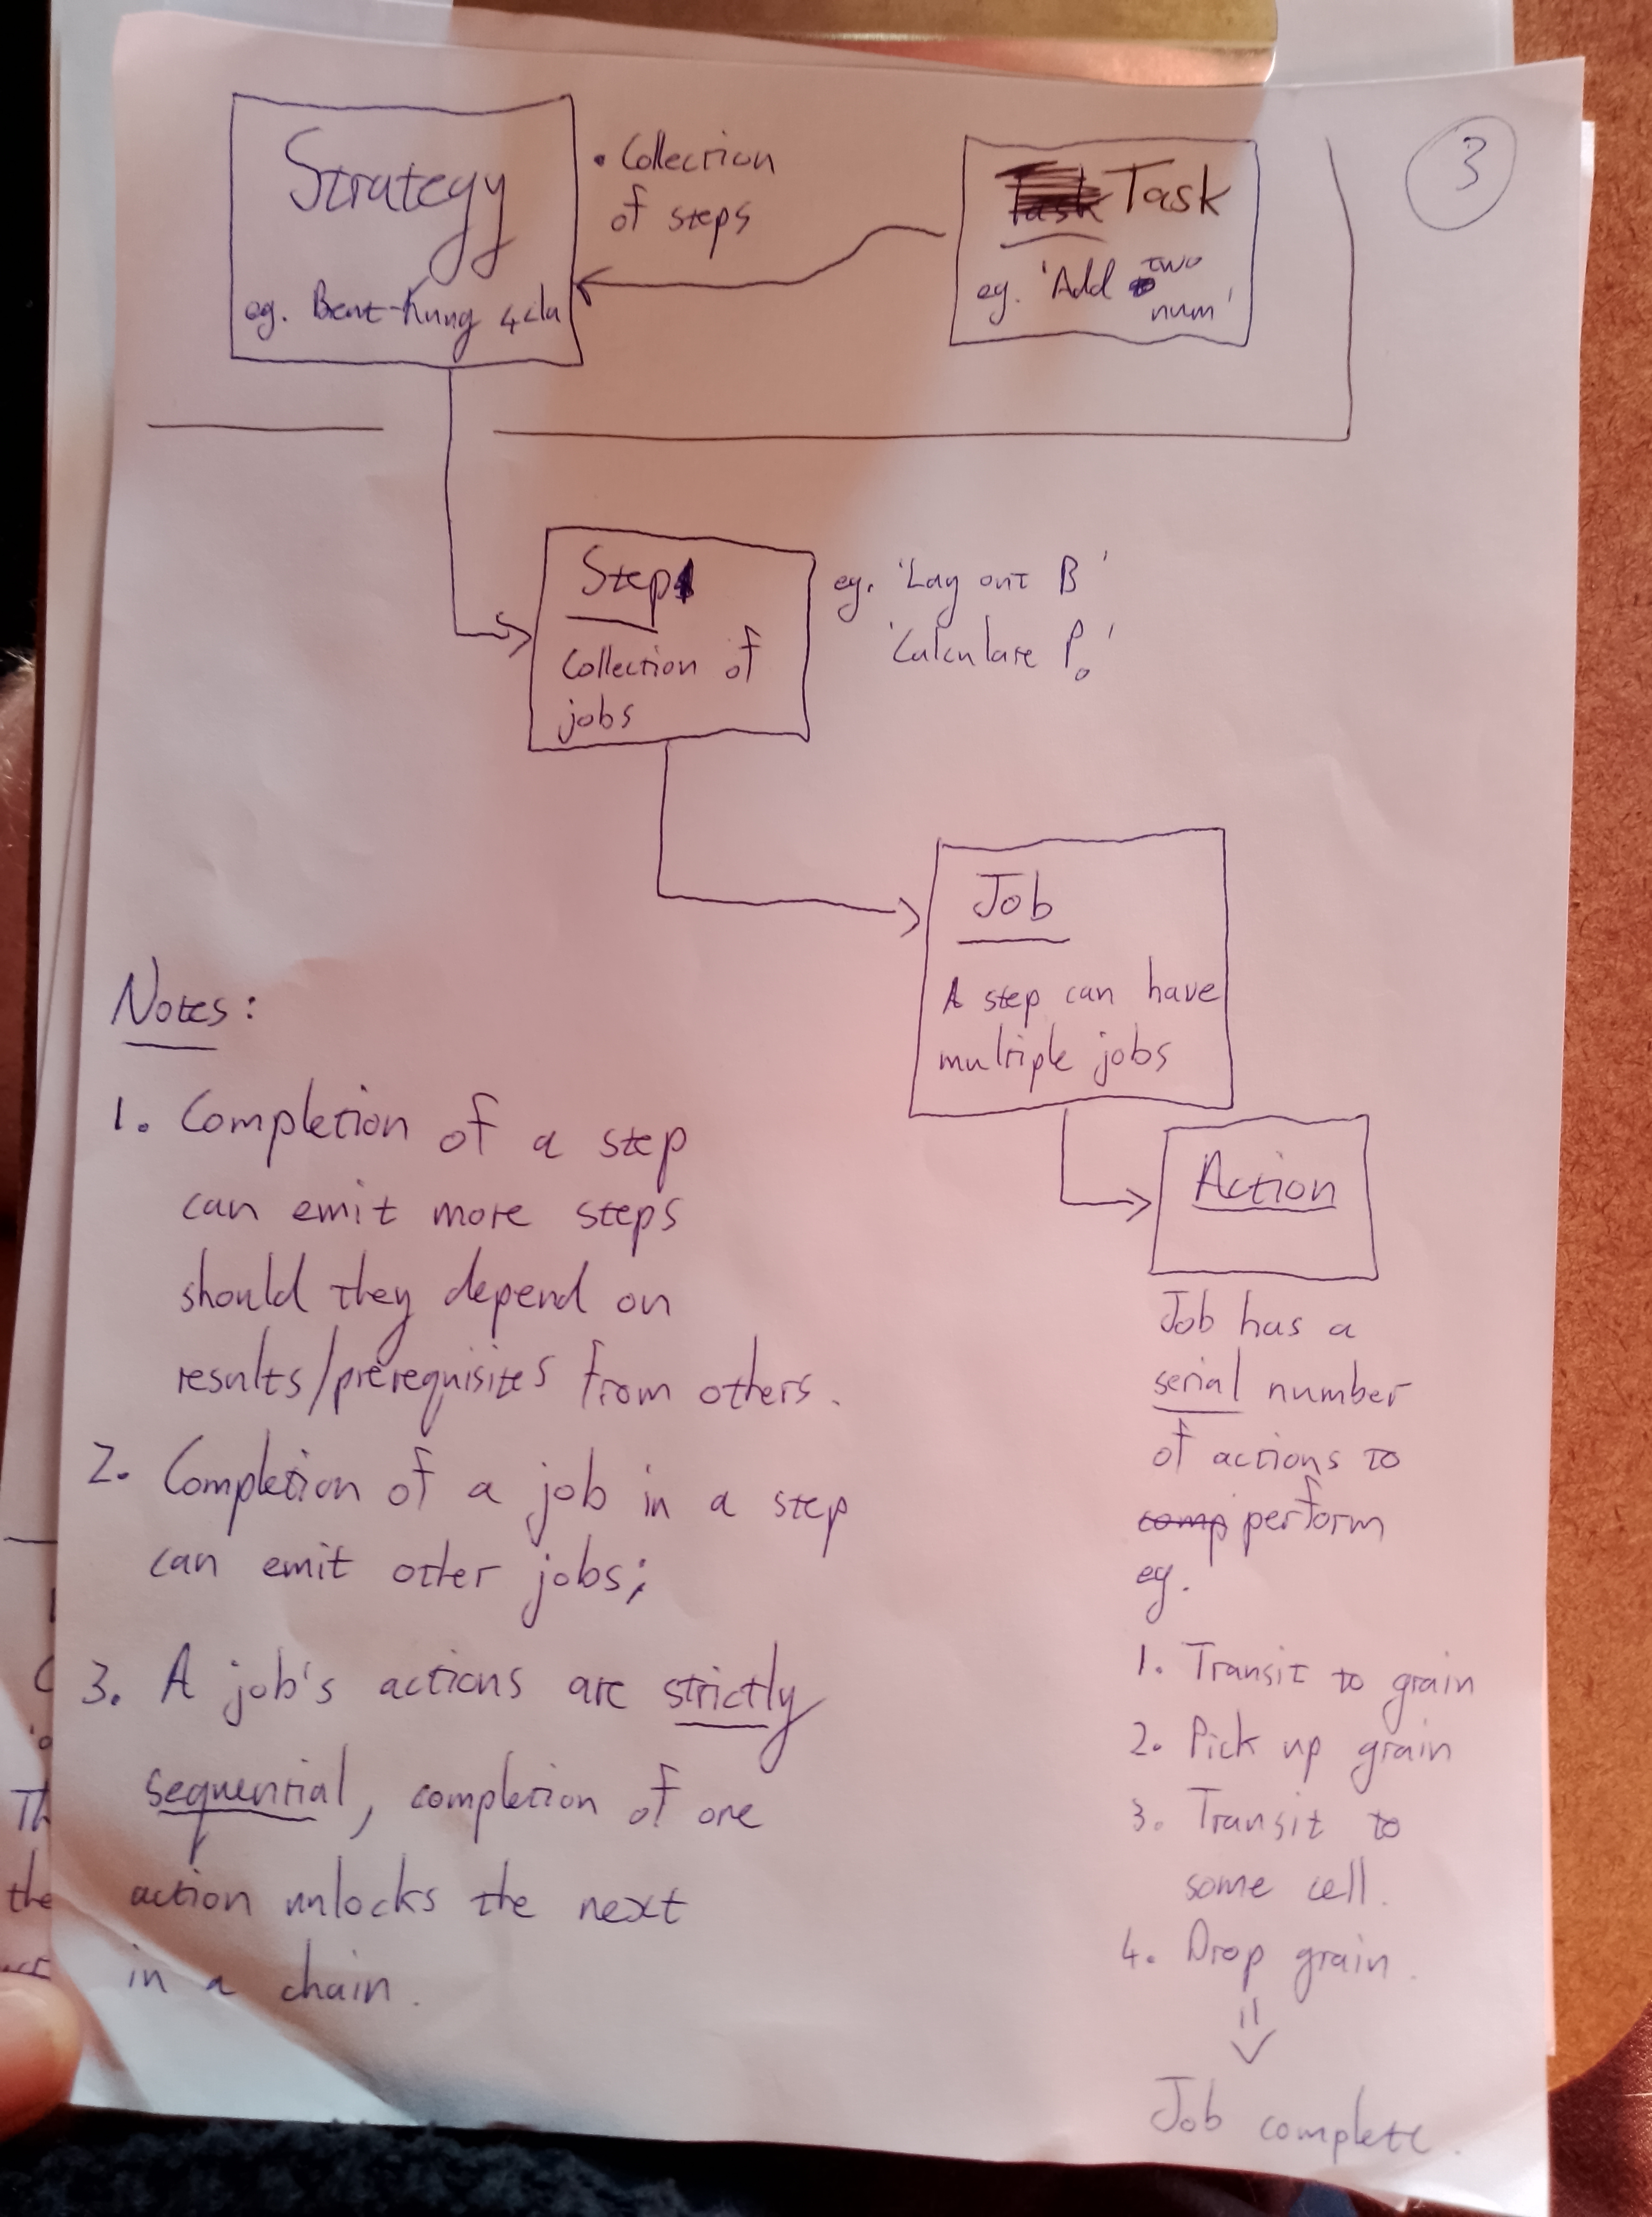 3
Strategy
eg. Bent-Kung 4cla
• Collection
of steps
Task
eg. 'Add two
num'
Step
Collection of
jobs
eg. 'Lay out B'
'Calculate P₀'
Job
A step can have
multiple jobs
Action
Job has a
serial number
of actions to
comp perform
eg.
1. Transit to grain
2. Pick up grain
3. Transit to
some cell.
4. Drop grain.
Job complete.
Notes:
1. Completion of a step
can emit more steps
should they depend on
results/prerequisites from others.
2. Completion of a job in a step
can emit other jobs;
3. A job's actions are strictly
sequential, completion of one
action unlocks the next
in a chain.
Th
the